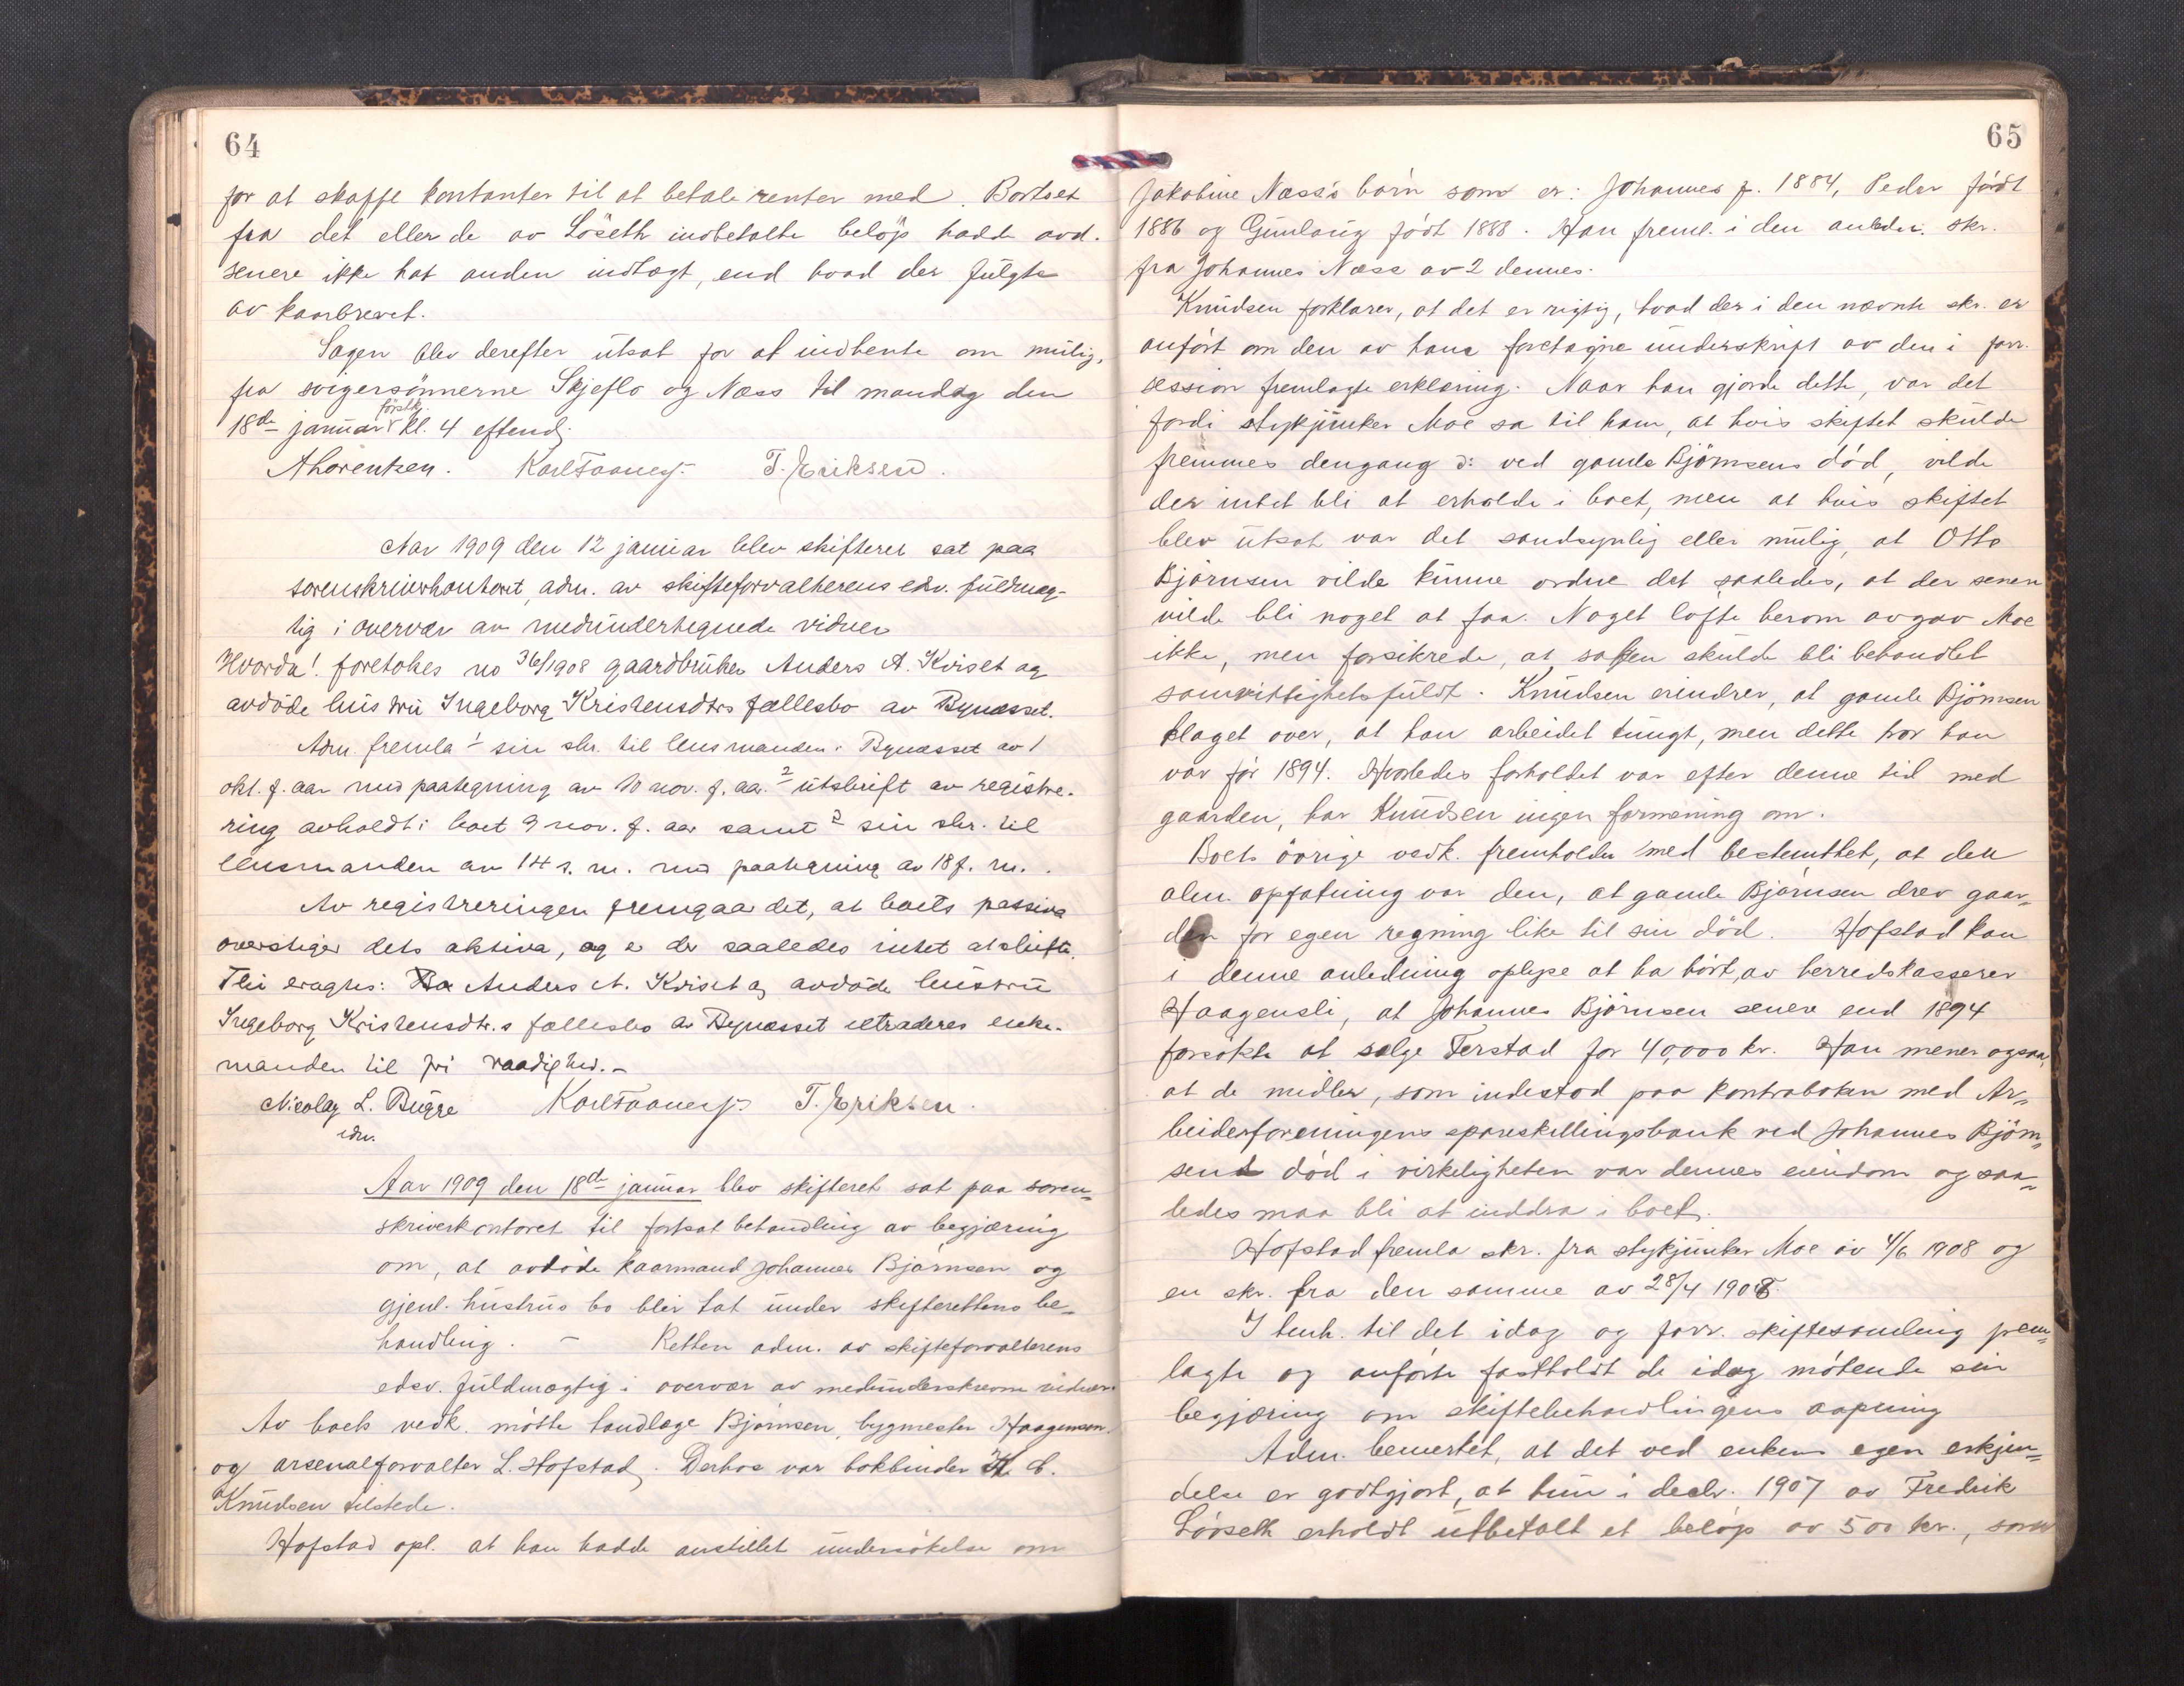 64
for at skaffe kontanter til at betale renter med. Bortset
fra det eller de av Löseth indbetalte belöp hadde avd.
senere ikke hat anden indtægt, end hvad der fulgte
av kaarbrevet.
Sagen blev derefter utsat for at indhente om mulig,
fra svigersönnerne Skjeflo og Næss til mandag den
18de januar förstk. kl. 4 efterm.
A Lorentzen. Karl Faanes. T. Eriksen.
Aar 1909 den 12 januar blev skifteret sat paa
sorenskriverkontoret, adm. av skifteforvalterens edsv. fuldmæg-
tig i overvær av medundertegnede vidner
Hvorda! foretokes no 36/1908 gaardbruker Anders A. Kviset og
avdöde hustru Ingeborg Kristensdtrs fællesbo av Bynæsset.
Adm. fremla 1 sin skr. til lensmanden i Bynæsset av 1
okt. f. aar med paategning av 10 nov. f. aar. 2 utskrift av registre-
ring avholdt i boet 9 nov. f. aar samt 3 sin skr. til
lensmanden av 14 s. m. med paategning av 18 f. m.
Av registreringen fremgaar det, at boets passiva
overstiger dets aktiva, og er der saaledes intet at skifte.
Thi eragtes: Anders A. Kviset og avdöde hustru
Ingeborg Kristensdtr.s fællesbo av Bynæsset extraderes enke-
manden til fri raadighed.-
Nicolay L. Bugge Karl Faanes T. Eriksen.
edsv.
Aar 1909 den 18de januar blev skifteret sat paa soren-
skriverkontoret til fortsat behandling av begjæring
om, at avdöde kaarmand Johannes Björnsen og
gjenl. hustrus bo blir tat under skifterettens be-
handling. - Retten adm. av skifteforvalterens
edsv. fuldmægtig i overvær av medunderskrevne vidner.
Av boets vedk. mötte tandlæge Björnsen, bygmester Haagensen
og arsenalforvalter L. Hofstad. Derhos var bokbinder K. A.
Knudsen tilstede.
Hofstad opl. at han hadde anstillet undersökelse om
65
Jakobine Næss's börn som er: Johannes f. 1884, Peder födt
1886 og Gunlaug födt 1888. Han freml. i den anledn. skr.
fra Johannes Næss av 2 dennes.
Knudsen forklarer, at det er rigtig, hvad der i den nævnte skr. er
anfört om den av ham foretagne underskrift av den i forr.
session fremlagte erklæring. Naar han gjorde dette, var det
fordi stykjunker Moe sa til ham, at hvis skiftet skulde
fremmes dengang ɔ: ved gamle Björnsens död, vilde
der intet bli at erholde i boet, men at hvis skiftet
blev utsat var det sandsynlig eller mulig, at Otto
Björnsen vilde kunne ordne det saaledes, at der senere
vilde bli noget at faa. Noget löfte herom avgav Moe
ikke, men forsikrede, at saken skulde bli behandlet
samvittighetsfuldt. Knudsen erindrer, at gamle Björnsen
klaget over, at han arbeidet tungt, men dette tror han
var för 1894. Hvorledes forholdet var efter denne tid med
gaarden, har Knudsen ingen formening om.
Boets övrige vedk. fremholder med bestemthet, at den
alm. opfatning var den, at gamle Björnsen drev gaar-
den for egen regning like til sin död. Hofstad kan
i denne anledning oplyse at ha hört, av herredskasserer
Haagensli, at Johannes Björnsen senere end 1894
forsökte at sælge Ferstad for 40,000 kr. Han mener ogsaa,
at de midler, som indestod paa kontraboken med Ar-
beiderforeningens spareskillingsbank ved Johannes Björn-
sens död i virkeligheten var dennes eiendom og saa-
ledes maa bli at inddra i boet.
Hofstad fremla skr. fra stykjunker Moe av 4/6 1908 og
en skr. fra den samme av 28/4 1908.
I henh. til det idag og forr. skiftesamling frem-
lagte og anförte fastholdt de idag mötende sin
begjæring om skiftebehandlingens aapning
Adm. bemerket, at det ved enkens egen erkjen-
delse er godtgjort, at hun i decbr. 1907 av Fredrik
Lövseth erholdt utbetalt et belöp av 500 kr., som